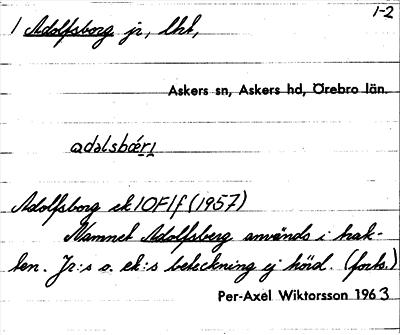 1-2
1 Adolfsborg jr, lht,
Askers sn, Askers hd, Örebro län.
adəlsbœ́ri
Adolfsborg ek 10F1f (1957)
Namnet Adolfsberg används i trak-
ten. Jr:s o. ek:s beteckning ej hörd. (forts.)
Per-Axel Wiktorsson 1963